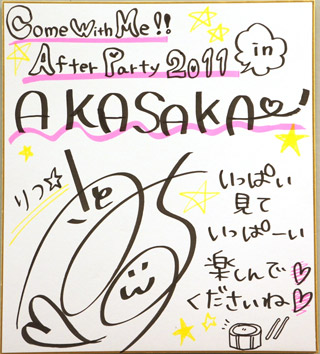 Come With Me!!
After Party 2011 in
AKASAKA
りつ☆
いっぱい
見て
いっぱーい
楽しんで
くださいね